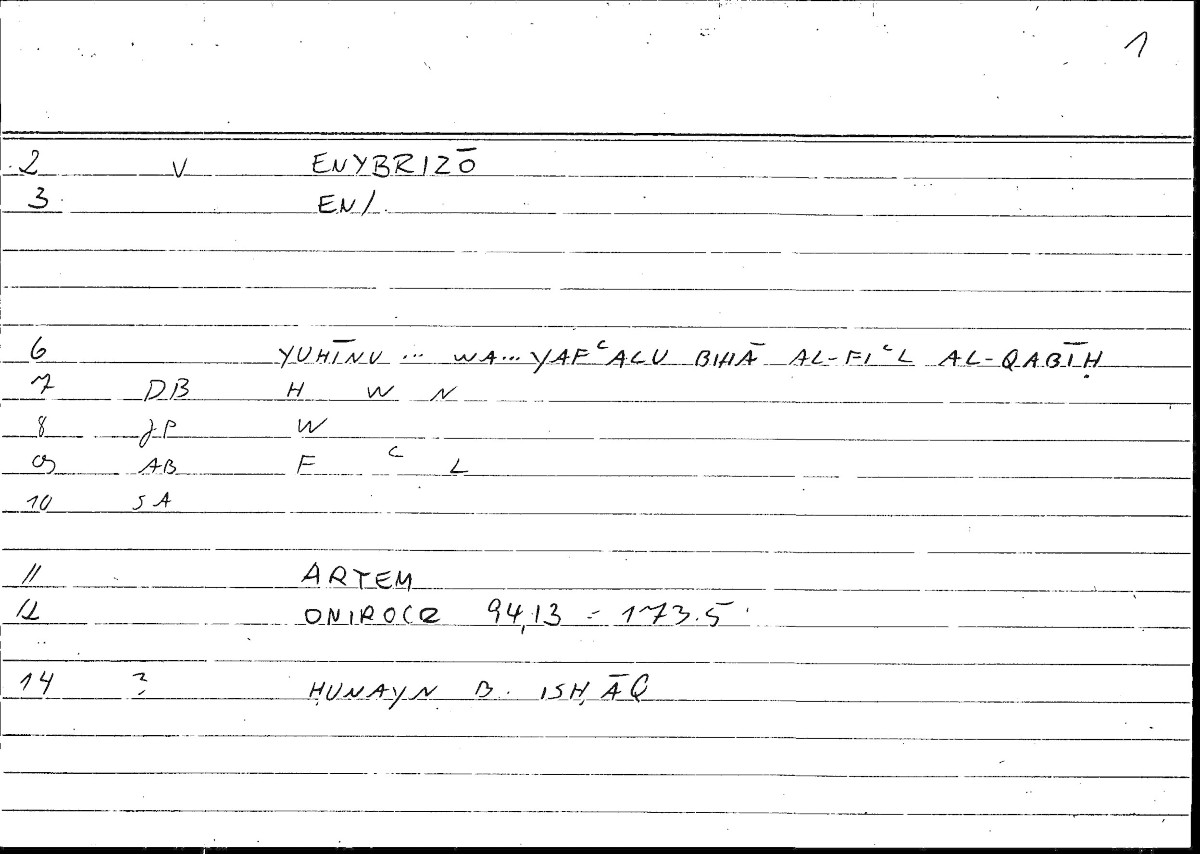 1
2 V ENYBRIZŌ
3 EN/.
6 YUHĪNU ... WA... YAFʿALU BIHĀ AL-FIʿL AL-QABĪḤ
7 DB H W N
8 JP W
9 AB F ʿ L
10 SA
11 ARTEM
12 ONIROCR 94,13 = 173.5
14 ? ḤUNAYN B. ISḤĀQ